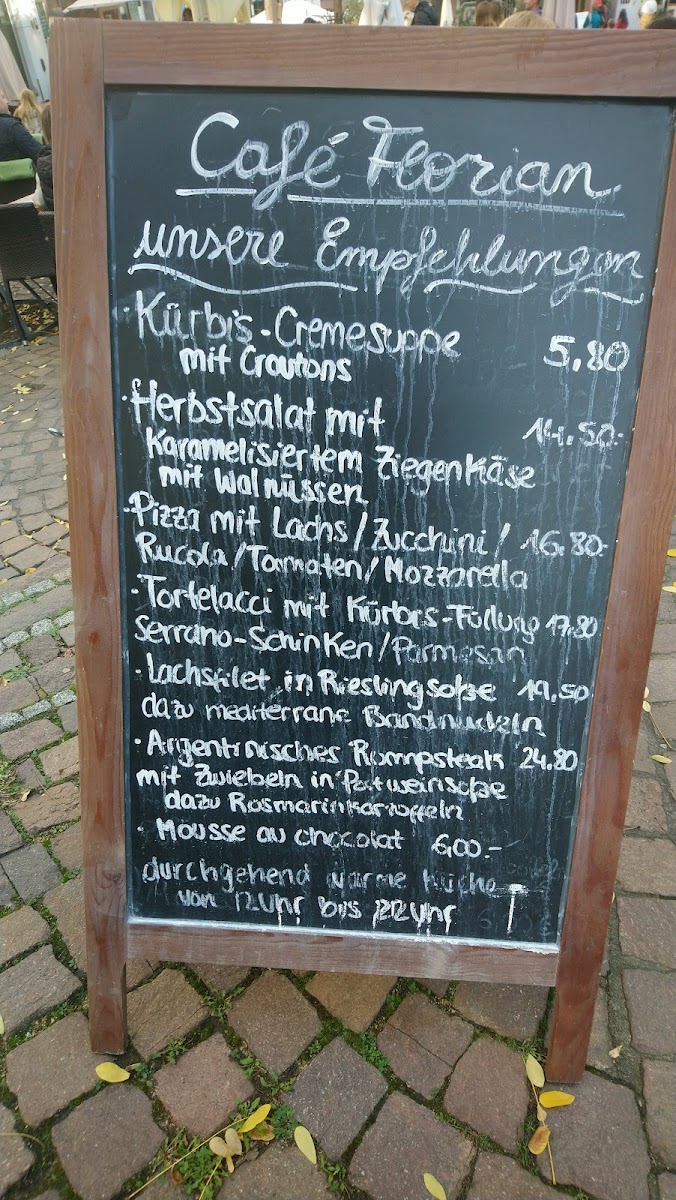 Café Florian
unsere Empfehlungen
· Kürbis-Cremesuppe 5,80
mit Croutons
· Herbstsalat mit 14.50-
Karamelisiertem Ziegenkäse
mit Walnüssen
· Pizza mit Lachs/Zucchini/ 16.80-
Rucola/Tomaten/Mozzarella
· Tortelacci mit Kürbis-Füllung 17,80
Serrano-Schinken/Parmesan
· Lachsfilet in Rieslingsoße 19,50
dazu mediterrane Bandnudeln
· Argentinisches Rumpsteak 24,80
mit Zwiebeln in Portweinsoße
dazu Rosmarinkartoffeln
· Mousse au chocolat 6,00.-
durchgehend warme Küche
von 12 Uhr bis 22 Uhr